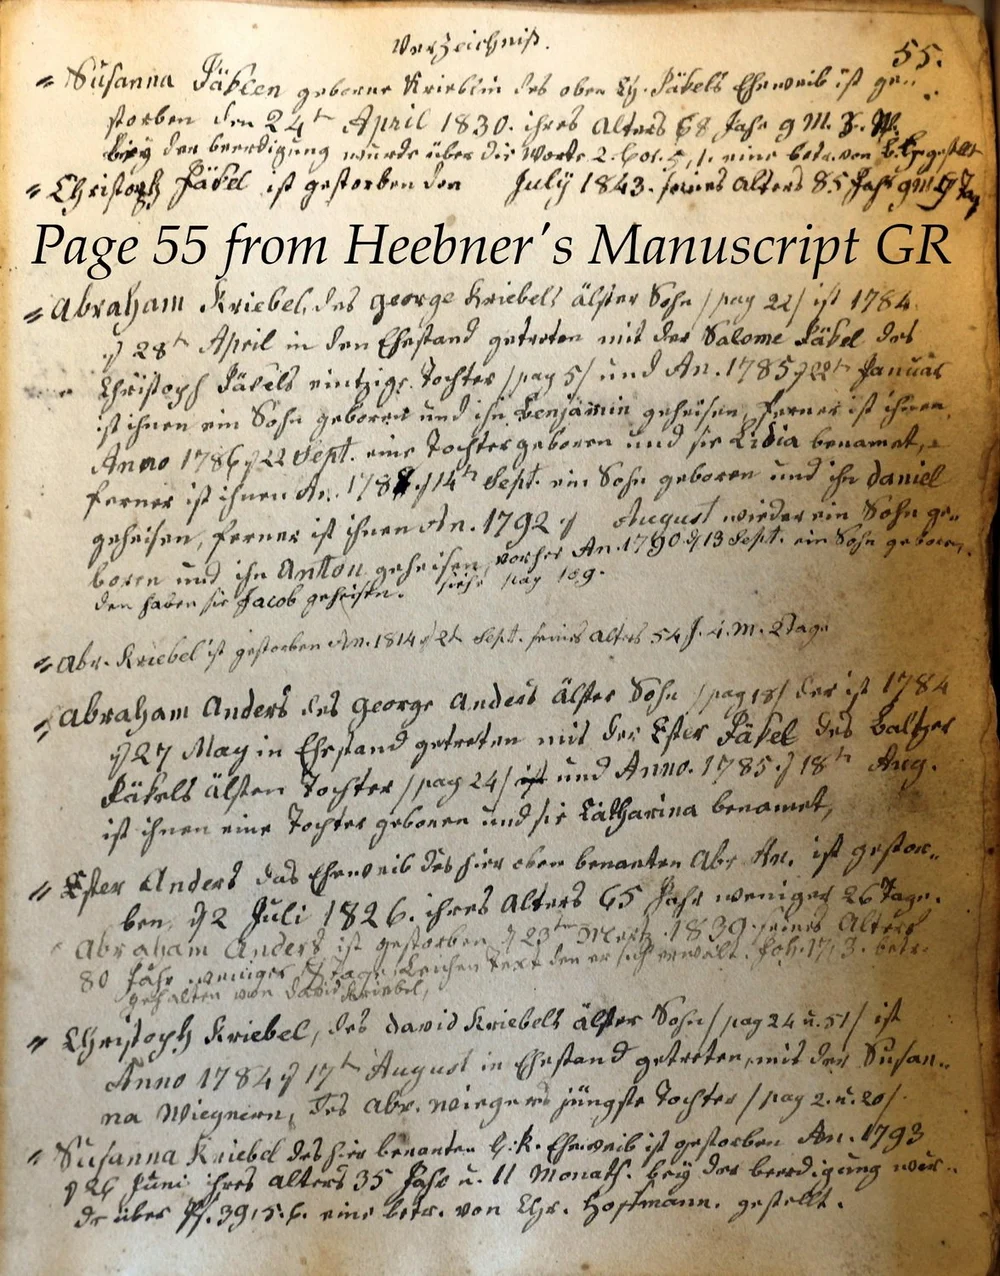 Verzeichniß.
55.
Susanna Jäklen geborne Krieblin des oben Ch. Jäkels Eheweib ist ge=
storben den 24th April 1830. ihres alters 68 Jahr 9 M.
bey der beerdigung wurde über die Worte 2. Cor. 5, 1. eine betr. von gestelt
Christoph Jäkel ist gestorben den July 1843. seines alters 85 Jahr 9 M. Tag
Page 55 from Heebner's Manuscript GR
Abraham Kriebel, des George Kriebels älster Sohn /pag 22/ ist 1784
d 28th April in den Ehestand getreten mit der Salome Jäkel des
Christoph Jäkels eintzige Tochter /pag 5/ und An. 1785 d 22th Januar
ist ihnen ein Sohn geboren und ihn Benjamin geheisen, ferner ist ihnen
Anno 1786 d 22 Sept. eine Tochter geboren und sie Lidia benamet,
ferner ist ihnen An. 1788 d 14th Sept. ein Sohn geboren und ihn Daniel
geheisen, ferner ist ihnen An. 1792 d August wieder ein Sohn ge=
boren und ihn Anton geheisen, vorher An. 1790 d 13 Sept. ein Sohn geboren,
den haben sie Jacob geheisen. siehe pag 109.
Abr. Kriebel ist gestorben An. 1814 d 2t Sept. seines alters 54 J. 4. M. 2 Tage
Abraham Anders des George Anders älster Sohn /pag 18/ der ist 1784
d 27 May in Ehestand getreten mit der Ester Jäkel des Baltzer
Jäkels älsten Tochter /pag 24/ ist und Anno. 1785. d 18th Aug.
ist ihnen eine Tochter geboren und sie Catharina benamet,
Ester Anders das Eheweib des hier oben benanten Abr. An. ist gestor=
ben d 2 Juli 1826. ihres alters 65 Jahr weniger 26 Tage.
Abraham Anders ist gestorben d 23ten Mertz 1839. seines Alters
80 Jahr weniger 8 tage. Leichen Text den er sich erwelt. Joh. 17, 3. betr.
gehalten von David Kriebel,
Christoph Kriebel, des David Kriebels älster Sohn /pag 24 u. 51/ ist
Anno 1784 d 17th August in Ehestand getreten, mit der Susan=
na Wiegnern, des Abr. Wiegners jüngste Tochter /pag 2. u. 20/.
Susanna Kriebel des hier benanten C. K. Eheweib ist gestorben An. 1793
d 26 Juni ihres alters 35 Jahr u. 11 Monath. bey der beerdigung wur=
de über Ps. 39, 5. 6. eine betr. von Chr. Hoffmann. gestellt.